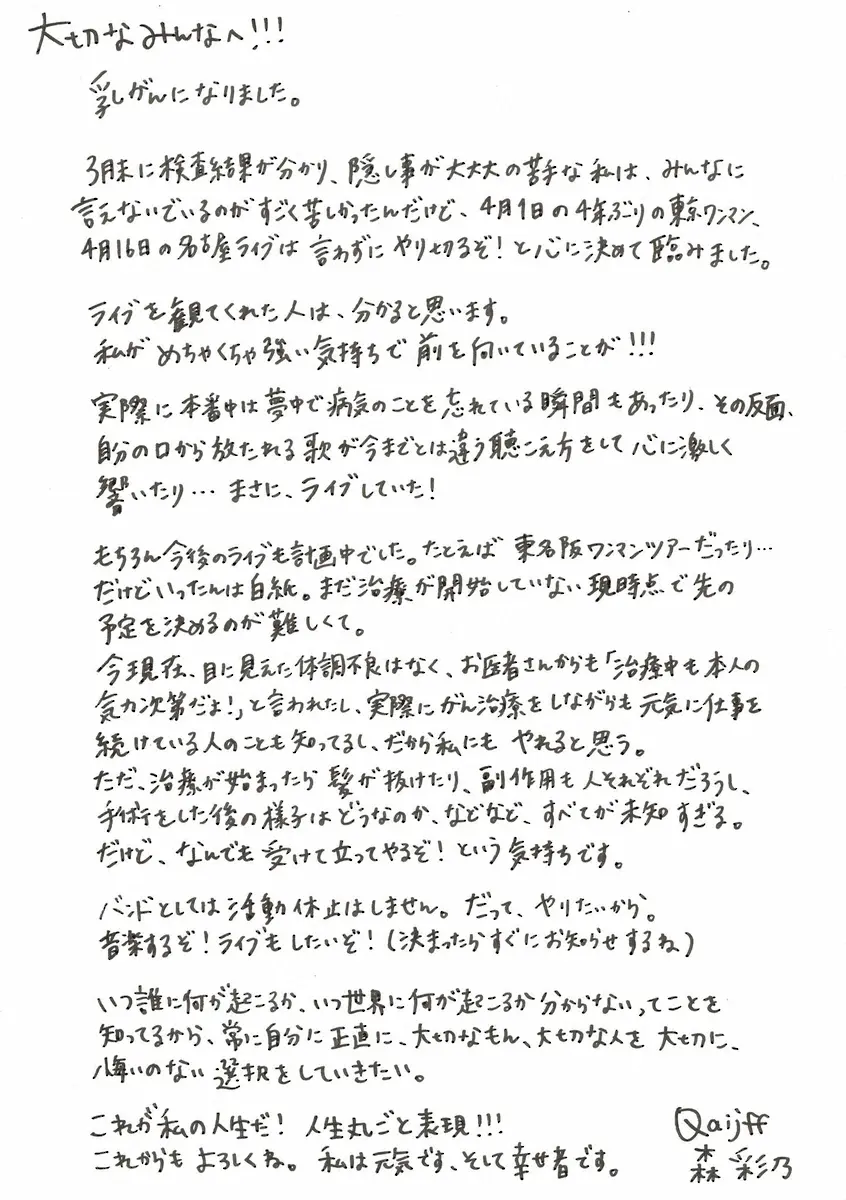 大切なみんなへ!!!
乳がんになりました。
3月末に検査結果が分かり、隠し事が大大大の苦手な私は、みんなに
言えないでいるのがすごく苦しかったんだけど、4月9日の4年ぶりの東京ワンマン、
4月16日の名古屋ライブは言わずにやり切るぞ!と心に決めて臨みました。
ライブを観てくれた人は、分かると思います。
私がめちゃくちゃ強い気持ちで前を向いていることが!!!
実際に本番中は夢中で病気のことを忘れている瞬間もあったり、その反面、
自分の口から放たれる歌が今までとは違う聴こえ方をして心に激しく
響いたり…まさに、ライブしていた!
もちろん今後のライブも計画中でした。たとえば東名阪ワンマンツアーだったり…
だけどいったんは白紙。まだ治療が開始していない現時点で先の
予定を決めるのが難しくて。
今現在、目に見えた体調不良はなく、お医者さんからも「治療中も本人の
気力次第だよ!」と言われたし、実際にがん治療をしながらも元気に仕事を
続けている人のことも知ってるし、だから私にもやれると思う。
ただ、治療が始まったら髪が抜けたり、副作用も人それぞれだろうし、
手術をした後の様子はどうなのか、などなど、すべてが未知すぎる。
だけど、なんでも受けて立ってやるぞ!という気持ちです。
バンドとしては活動休止はしません。だって、やりたいから。
音楽するぞ!ライブもしたいぞ!(決まったらすぐにお知らせするね)
いつ誰に何が起こるか、いつ世界に何が起こるか分からないってことを
知ってるから、常に自分に正直に、大切なもん、大切な人を大切に、
悔いのない選択をしていきたい。
これが私の人生だ!人生丸ごと表現!!!
これからもよろしくね。私は元気です、そして幸せ者です。
Qaijff
森 彩乃